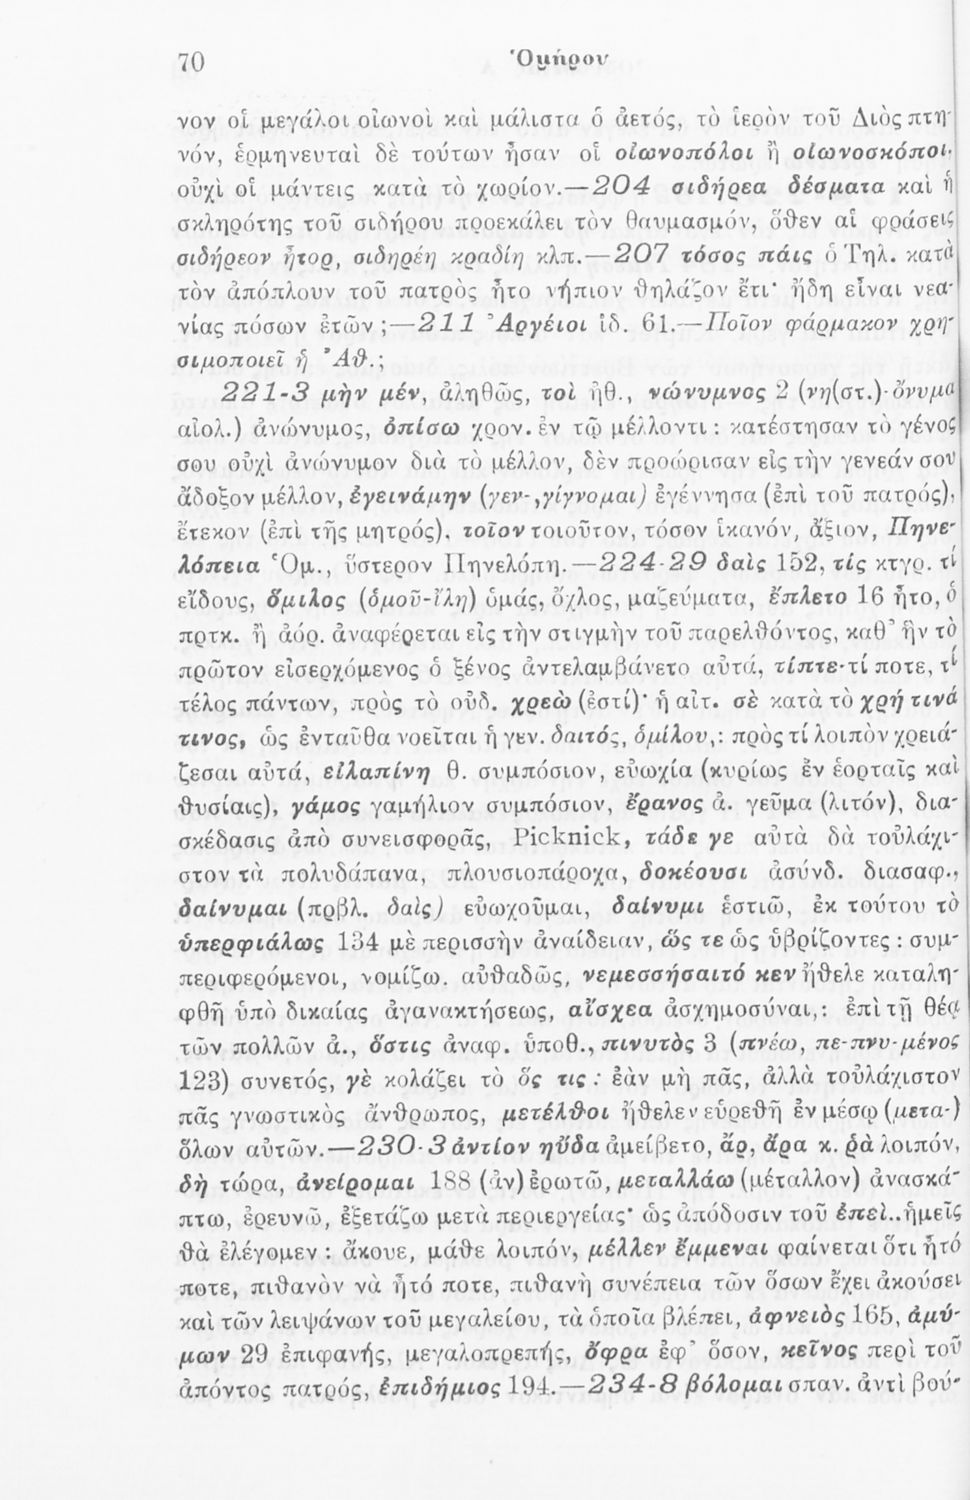 70
Ὁμήρου
νον οἱ μεγάλοι οἰωνοὶ καὶ μάλιστα ὁ ἀετός, τὸ ἱερὸν τοῦ Διὸς πτη-
νόν, ἑρμηνευταὶ δὲ τούτων ἦσαν οἱ οἰωνοπόλοι ἢ οἰωνοσκόποι.
οὐχὶ οἱ μάντεις κατὰ τὸ χωρίον.—204 σιδήρεα δέσματα καὶ ἡ
σκληρότης τοῦ σιδήρου προεκάλει τὸν θαυμασμόν, ὅθεν αἱ φράσεις
σιδήρεον ἦτορ, σιδηρέη κραδίη κλπ.—207 τόσος πάις ὁ Τηλ. κατὰ
τὸν ἀπόπλουν τοῦ πατρὸς ἦτο νήπιον θηλάζον ἔτι· ἤδη εἶναι νεα-
νίας πόσων ἐτῶν ;—211 Ἀργέιοι ἰδ. 61.—Ποῖον φάρμακον χρη-
σιμοποιεῖ ἡ Ἀθ.;
221-3 μὴν μέν, ἀληθῶς, τοὶ ἠθ., νώνυμνος 2 (νη(στ.)-ὄνυμα
αἰολ.) ἀνώνυμος, ὀπίσω χρον. ἐν τῷ μέλλοντι : κατέστησαν τὸ γένος
σου οὐχὶ ἀνώνυμον διὰ τὸ μέλλον, δὲν προώρισαν εἰς τὴν γενεάν σου
ἄδοξον μέλλον, ἐγεινάμην (γεν-, γίγνομαι) ἐγέννησα (ἐπὶ τοῦ πατρός),
ἔτεκον (ἐπὶ τῆς μητρός), τοῖον τοιοῦτον, τόσον ἱκανόν, ἄξιον, Πηνε-
λόπεια Ὁμ., ὕστερον Πηνελόπη.—224-29 δαὶς 152, τίς κτγρ. τί
εἴδους, ὅμιλος (ὁμοῦ-ἴλη) ὁμάς, ὄχλος, μαζεύματα, ἔπλετο 16 ἦτο, ὁ
πρτκ. ἢ ἀόρ. ἀναφέρεται εἰς τὴν στιγμὴν τοῦ παρελθόντος, καθ’ ἣν τὸ
πρῶτον εἰσερχόμενος ὁ ξένος ἀντελαμβάνετο αὐτά, τίπτε-τί ποτε, τί
τέλος πάντων, πρὸς τὸ οὐδ. χρεὼ (ἐστί)· ἡ αἰτ. σὲ κατὰ τὸ χρή τινά
τινος, ὡς ἐνταῦθα νοεῖται ἡ γεν. δαιτός, ὁμίλου,: πρὸς τί λοιπὸν χρειά-
ζεσαι αὐτά, εἰλαπίνη θ. συμπόσιον, εὐωχία (κυρίως ἐν ἑορταῖς καὶ
θυσίαις), γάμος γαμήλιον συμπόσιον, ἔρανος ἀ. γεῦμα (λιτόν), δια-
σκέδασις ἀπὸ συνεισφορᾶς, Picknick, τάδε γε αὐτὰ δὰ τοὐλάχι-
στον τὰ πολυδάπανα, πλουσιοπάροχα, δοκέουσι ἀσύνδ. διασαφ.,
δαίνυμαι (πρβλ. δαὶς) εὐωχοῦμαι, δαίνυμι ἑστιῶ, ἐκ τούτου τὸ
ὑπερφιάλως 134 μὲ περισσὴν ἀναίδειαν, ὥς τε ὡς ὑβρίζοντες : συμ-
περιφερόμενοι, νομίζω. αὐθαδῶς, νεμεσσήσαιτό κεν ἤθελε καταλη-
φθῆ ὑπὸ δικαίας ἀγανακτήσεως, αἴσχεα ἀσχημοσύναι,: ἐπὶ τῇ θέᾳ
τῶν πολλῶν ἀ., ὅστις ἀναφ. ὑποθ., πινυτὸς 3 (πνέω, πε-πνυ-μένος
123) συνετός, γὲ κολάζει τὸ ὅς τις : ἐὰν μὴ πᾶς, ἀλλὰ τοὐλάχιστον
πᾶς γνωστικὸς ἄνθρωπος, μετέλθοι ἤθελεν εὑρεθῆ ἐν μέσῳ (μετα-)
ὅλων αὐτῶν.—230-3 ἀντίον ηὔδα ἀμείβετο, ἄρ, ἄρα κ. ῥὰ λοιπόν,
δὴ τώρα, ἀνείρομαι 188 (ἀν) ἐρωτῶ, μεταλλάω (μέταλλον) ἀνασκά-
πτω, ἐρευνῶ, ἐξετάζω μετὰ περιεργείας· ὡς ἀπόδοσιν τοῦ ἐπεὶ..ἡμεῖς
θὰ ἐλέγομεν : ἄκουε, μάθε λοιπόν, μέλλεν ἔμμεναι φαίνεται ὅτι ἦτό
ποτε, πιθανὸν νὰ ἦτό ποτε, πιθανὴ συνέπεια τῶν ὅσων ἔχει ἀκούσει
καὶ τῶν λειψάνων τοῦ μεγαλείου, τὰ ὁποῖα βλέπει, ἀφνειὸς 165, ἀμύ-
μων 29 ἐπιφανής, μεγαλοπρεπής, ὄφρα ἐφ’ ὅσον, κεῖνος περὶ τοῦ
ἀπόντος πατρός, ἐπιδήμιος 194.—234-8 βόλομαι σπαν. ἀντὶ βού-